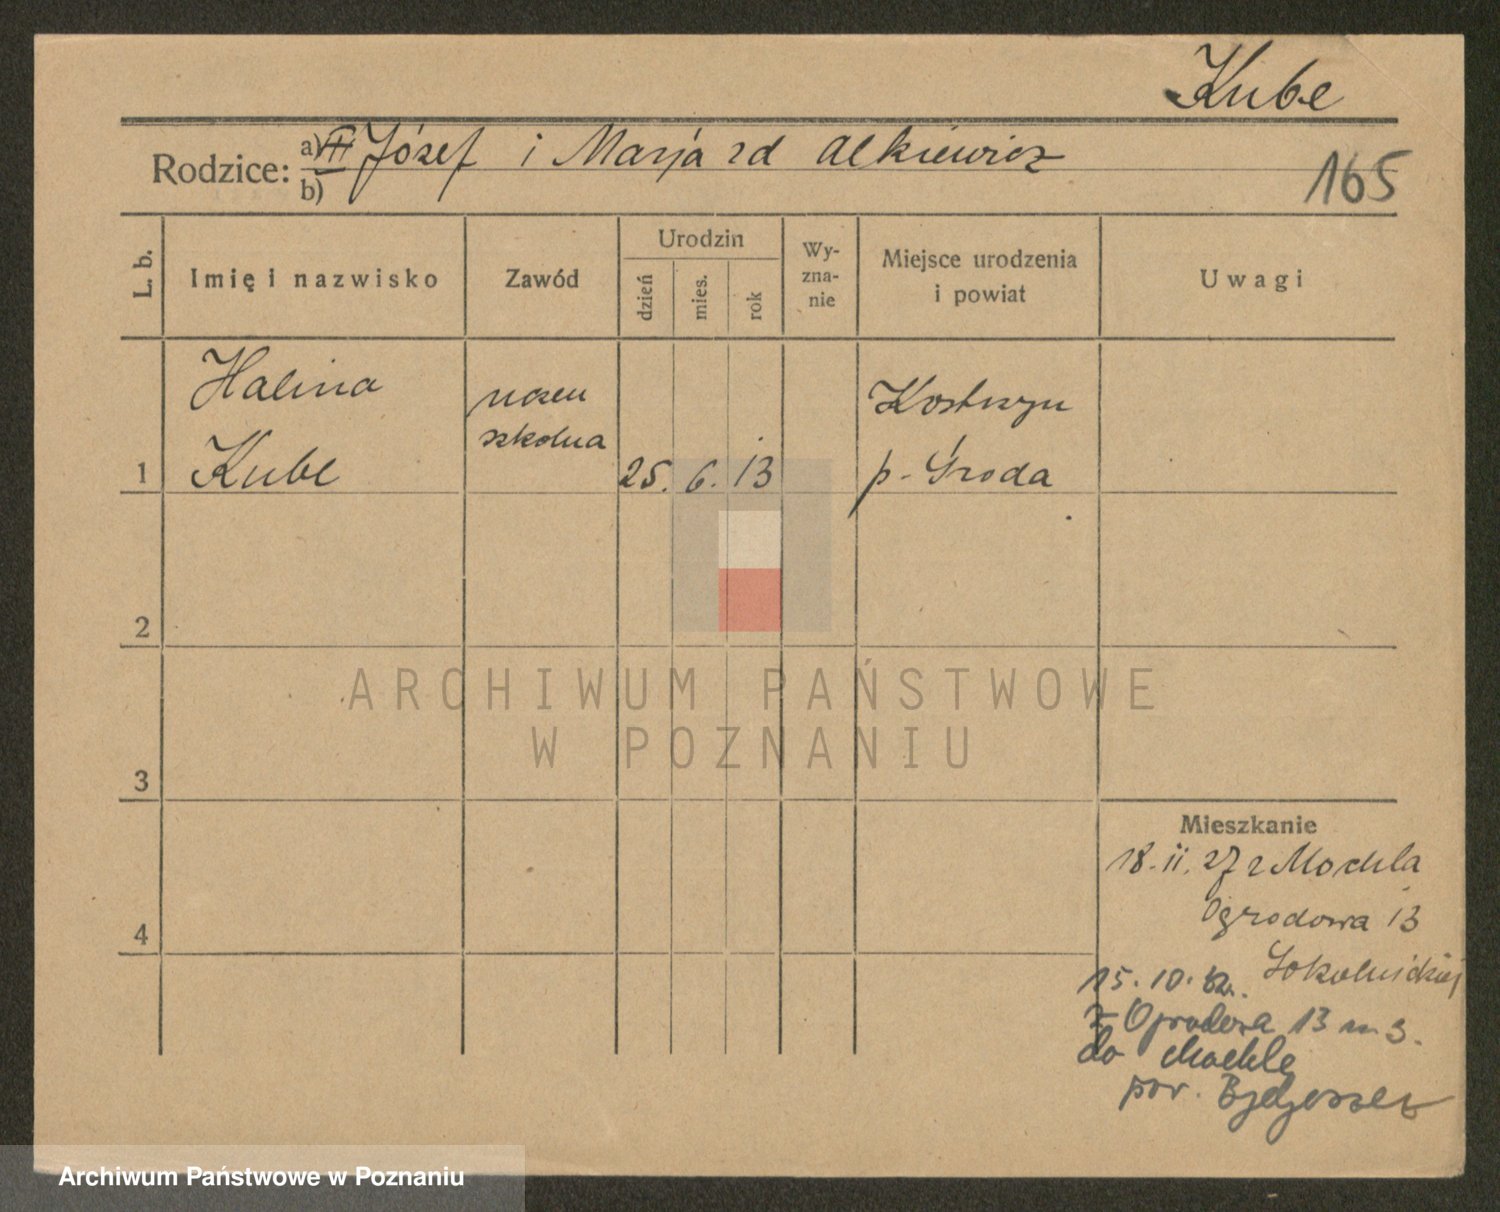 Kube
Rodzice: a) Józef i Marja zd Alkiewicz
b)
165
L. b.
Imię i nazwisko
Zawód
Urodzin
dzień
mies.
rok
Wy-
zna-
nie
Miejsce urodzenia
i powiat
Uwagi
Halina
Kube
uczen
szkolna
25. 6. 13
Kostrzyn
p. Środa
1
2
ARCHIWUM PAŃSTWOWE
W POZNANIU
3
Mieszkanie
18. II. 27 z Mochla
Ogrodowa 13
4
15. 10.
z Ogrodowa 13 m 3.
do Mochle
pow. Bydgoszcz
Archiwum Państwowe w Poznaniu